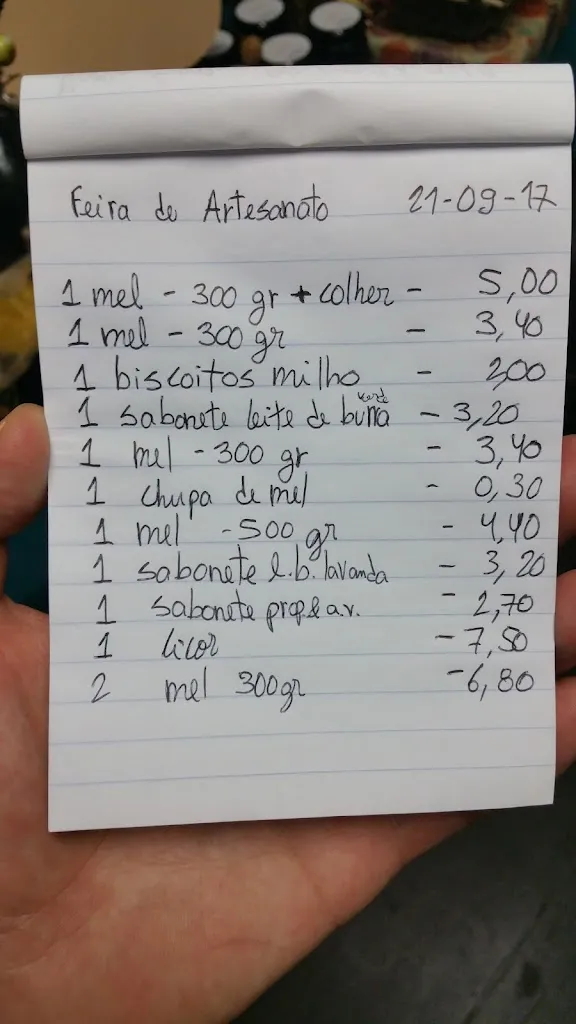 Feira de Artesanato 21-09-17
1 mel - 300 gr + colher - 5,00
1 mel - 300 gr - 3,40
1 biscoitos milho - 2,00
1 sabonete leite de burra - 3,20
1 mel - 300 gr - 3,40
1 chupa de mel - 0,30
1 mel - 500 gr - 4,40
1 sabonete l.b. lavanda - 3,20
1 sabonete prop & av. - 2,70
1 licor - 7,50
2 mel 300gr - 6,80